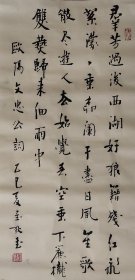 群芳過後西湖好狼籍殘紅飛
絮濛濛垂柳闌干盡日風笙歌
散盡遊人去始覺春空垂下簾櫳
雙燕歸來細雨中
歐陽文忠公詞乙巳夏